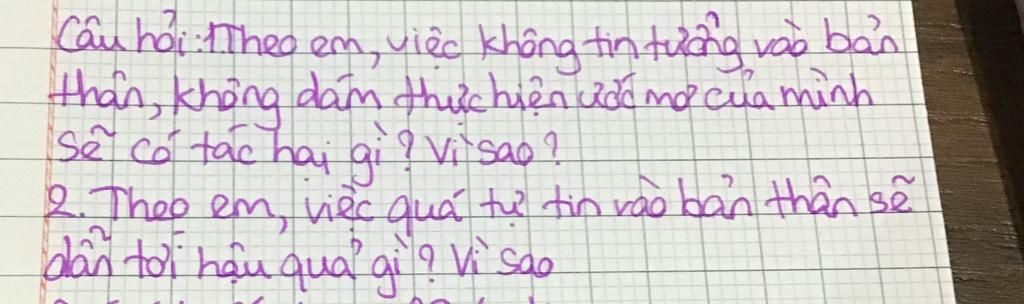 Câu hỏi: 1. Theo em, việc không tin tưởng vào bản
thân, không dám thực hiện ước mơ của mình
sẽ có tác hại gì? Vì sao?
2. Theo em, việc quá tự tin vào bản thân sẽ
dẫn tới hậu quả gì? Vì sao